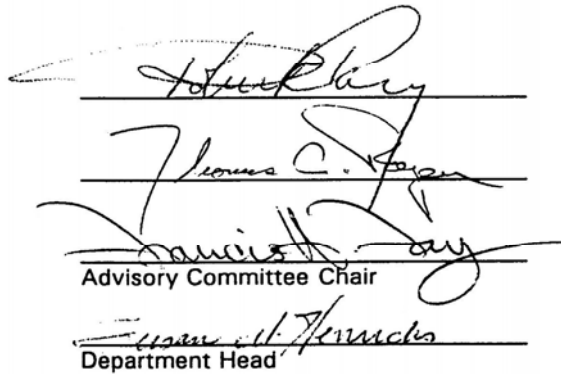 Thomas C. Royer
Francis H. Fay
Advisory Committee Chair
Susan M. Henrichs
Department Head